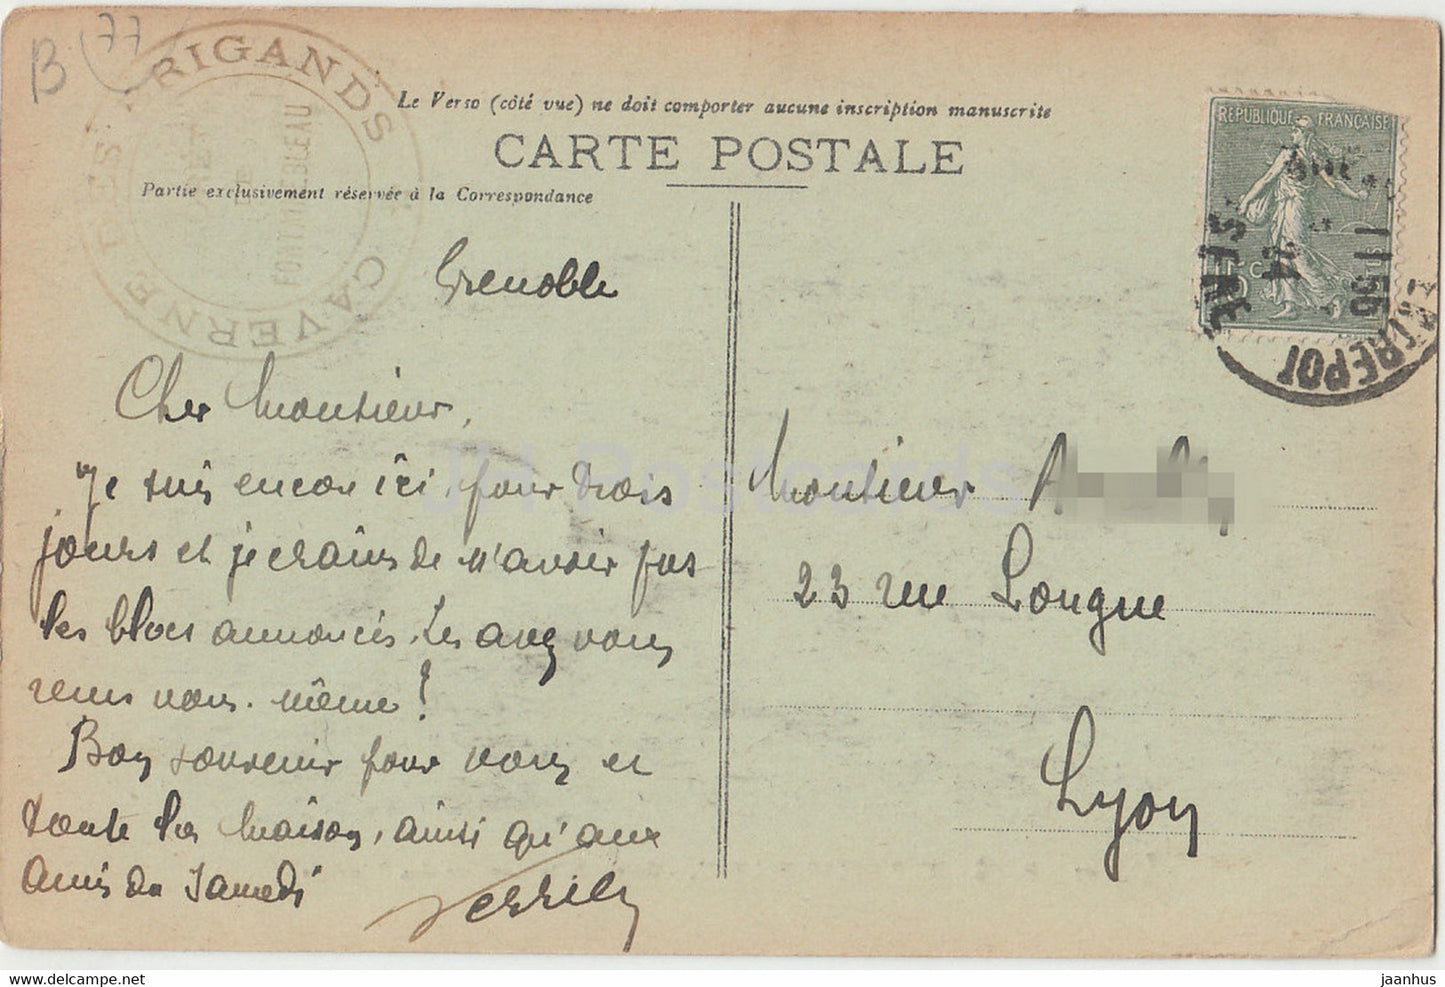 B (77
CAVERNE DES BRIGANDS
FONTAINEBLEAU
Le Verso (côté vue) ne doit comporter aucune inscription manuscrite
CARTE POSTALE
Partie exclusivement réservée à la Correspondance
REPUBLIQUE FRANÇAISE
ENTREPOT
ISERE
1155
14
Grenoble
Cher Monsieur,
Je suis encore ici, pour trois
jours et je crains de n'avoir pas
les blocs annoncés. Les avez vous
reçus vous-même?
Bon souvenir pour vous et
toute la maison, ainsi qu'aux
amis du Samedi
Monsieur A
23 rue Longue
Lyon
JH Postcards
www.delcampe.net
jaanhus